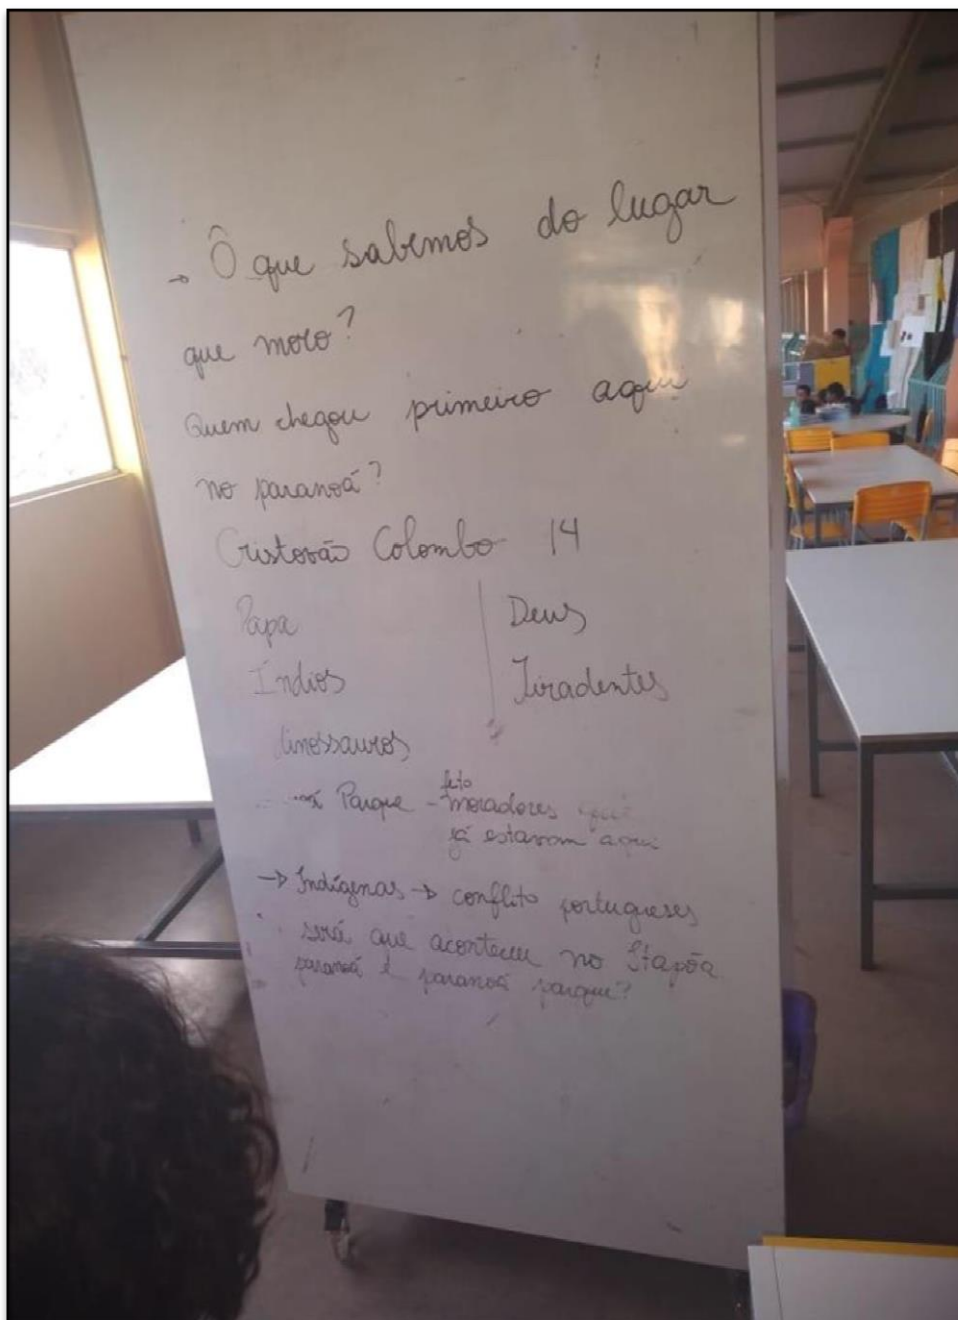 → O que sabemos do lugar
que moro?
Quem chegou primeiro aqui
no paranoá?
Cristovão Colombo 14
Papa
Deus
Índios
Tiradentes
dinossauros
Parque - feito moradores que
já estavam aqui
→ Indígenas → conflito portugueses
será que aconteceu no Itapõa
paranoá e paranoá parque?